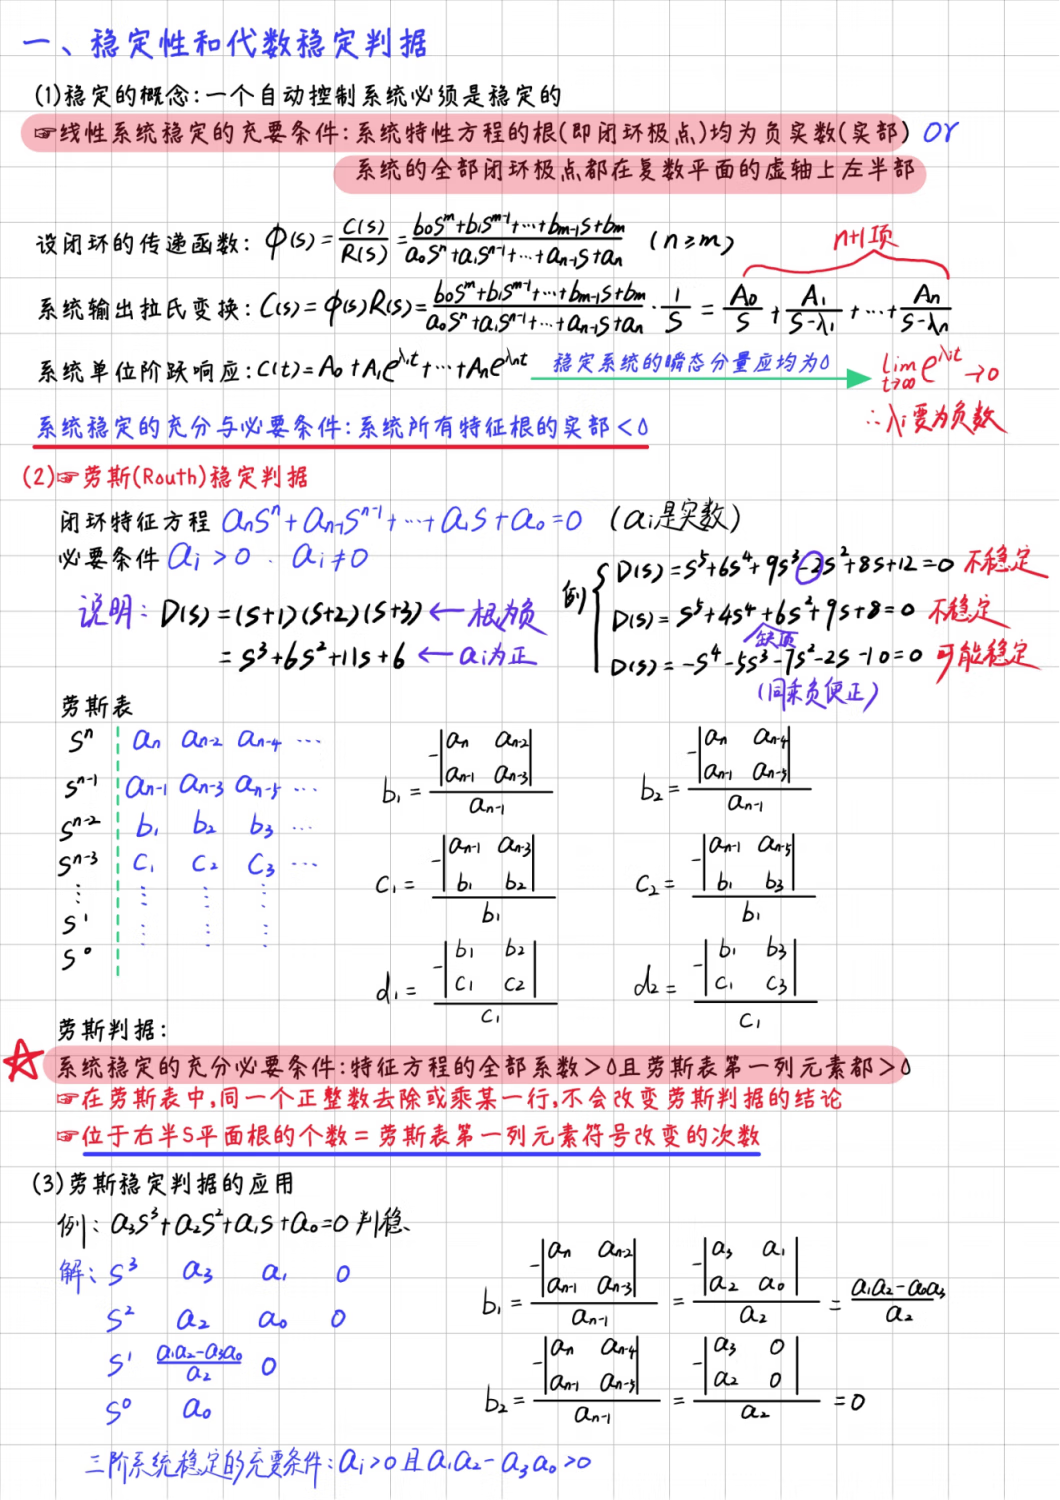 一、稳定性和代数稳定判据
(1)稳定的概念:一个自动控制系统必须是稳定的
☞线性系统稳定的充要条件:系统特性方程的根(即闭环极点)均为负实数(实部) or
系统的全部闭环极点都在复数平面的虚轴上左半部
设闭环的传递函数: Φ(s)=C(s)/R(s)=(b₀sᵐ+b₁sᵐ⁻¹+…+bₘ₋₁s+bₘ)/(a₀sⁿ+a₁sⁿ⁻¹+…+aₙ₋₁s+aₙ) (n≥m) n+1项
系统输出拉氏变换: C(s)=Φ(s)R(s)=(b₀sᵐ+b₁sᵐ⁻¹+…+bₘ₋₁s+bₘ)/(a₀sⁿ+a₁sⁿ⁻¹+…+aₙ₋₁s+aₙ)·1/s = A₀/s + A₁/(s-λ₁) +…+ Aₙ/(s-λₙ)
系统单位阶跃响应: C(t)=A₀+A₁e^λ₁t+…+Aₙe^λₙt 稳定系统的瞬态分量应均为0 lim t→∞ e^λᵢt →0
∴λᵢ要为负数
系统稳定的充分与必要条件:系统所有特征根的实部<0
(2)☞劳斯(Routh)稳定判据
闭环特征方程 aₙsⁿ+aₙ₋₁sⁿ⁻¹+…+a₁s+a₀=0 (aᵢ是实数)
必要条件 aᵢ>0 . aᵢ≠0
例 D(s)=s⁵+6s⁴+9s³-2s²+8s+12=0 不稳定
说明: D(s)=(s+1)(s+2)(s+3)←根为负
D(s)=s⁵+4s⁴+6s²+9s+8=0 不稳定
缺项
=s³+6s²+11s+6 ←aᵢ为正
D(s)=-s⁴-5s³-7s²-2s-10=0 可能稳定
(同乘负便正)
劳斯表
sⁿ aₙ aₙ₋₂ aₙ₋₄ …
sⁿ⁻¹ aₙ₋₁ aₙ₋₃ aₙ₋₅ …
sⁿ⁻² b₁ b₂ b₃ …
sⁿ⁻³ c₁ c₂ c₃ …
⋮ ⋮ ⋮ ⋮
s¹ ⋮ ⋮ ⋮
s⁰
b₁= -|aₙ aₙ₋₂; aₙ₋₁ aₙ₋₃|/aₙ₋₁ b₂= -|aₙ aₙ₋₄; aₙ₋₁ aₙ₋₅|/aₙ₋₁
c₁= -|aₙ₋₁ aₙ₋₃; b₁ b₂|/b₁ c₂= -|aₙ₋₁ aₙ₋₅; b₁ b₃|/b₁
d₁= -|b₁ b₂; c₁ c₂|/c₁ d₂= -|b₁ b₃; c₁ c₃|/c₁
劳斯判据:
☆系统稳定的充分必要条件:特征方程的全部系数>0且劳斯表第一列元素都>0
☞在劳斯表中,同一个正整数去除或乘某一行,不会改变劳斯判据的结论
☞位于右半S平面根的个数=劳斯表第一列元素符号改变的次数
(3)劳斯稳定判据的应用
例: a₃s³+a₂s²+a₁s+a₀=0 判稳.
解: s³ a₃ a₁ 0
s² a₂ a₀ 0
s¹ (a₁a₂-a₃a₀)/a₂ 0
s⁰ a₀
b₁= -|aₙ aₙ₋₂; aₙ₋₁ aₙ₋₃|/aₙ₋₁ = -|a₃ a₁; a₂ a₀|/a₂ = (a₁a₂-a₀a₃)/a₂
b₂= -|aₙ aₙ₋₄; aₙ₋₁ aₙ₋₅|/aₙ₋₁ = -|a₃ 0; a₂ 0|/a₂ =0
三阶系统稳定的充要条件: aᵢ>0且a₁a₂-a₃a₀>0